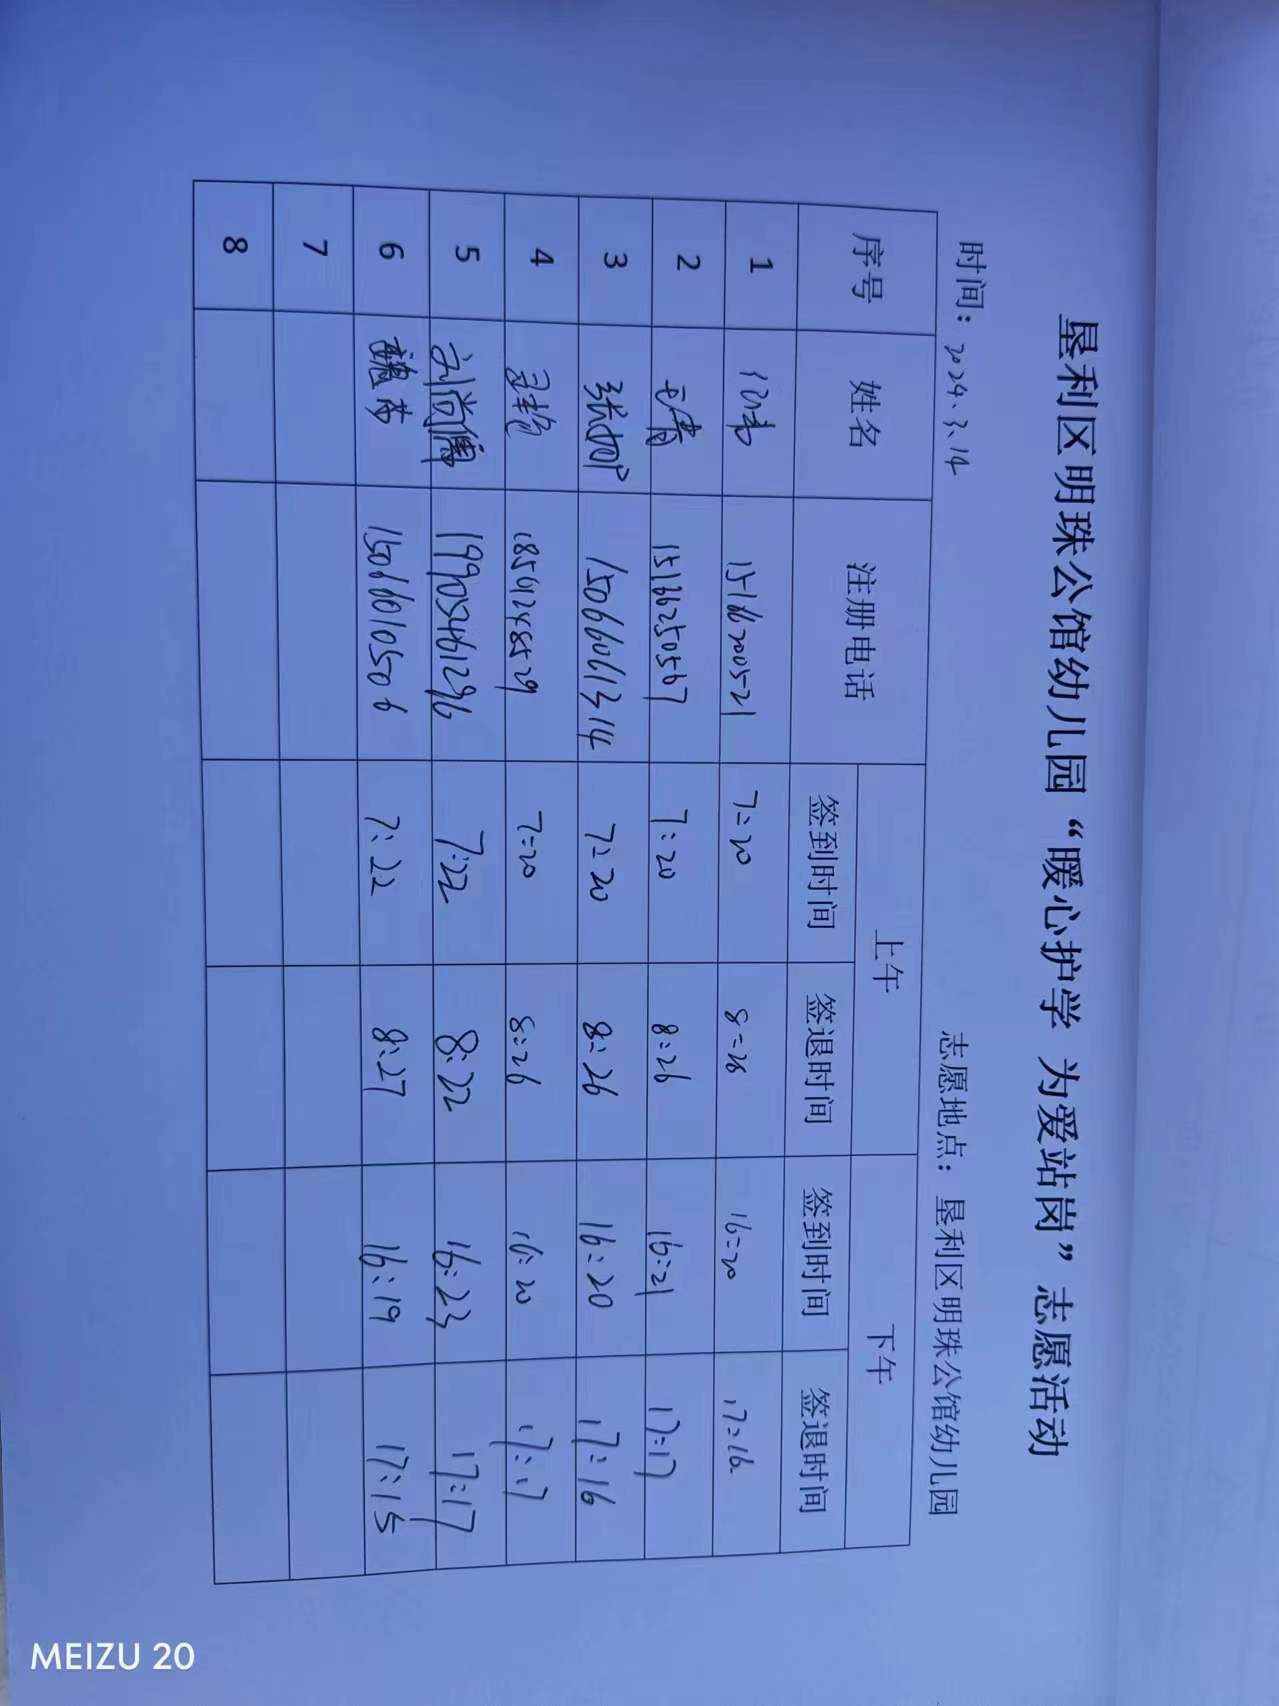 垦利区明珠公馆幼儿园“暖心护学 为爱站岗”志愿活动
时间：2024、3、14 志愿地点：垦利区明珠公馆幼儿园
序号 姓名 注册电话 上午 下午
签到时间 签退时间 签到时间 签退时间
1 15166200521 7:20 8:26 16:20 17:16
2 王青 15166250567 7:20 8:26 16:21 17:17
3 15066061314 7:20 8:26 16:20 17:16
4 18561248529 7:20 8:26 16:20 17:17
5 刘尚儒 19905461296 7:22 8:22 16:23 17:17
6 15066010506 7:22 8:27 16:19 17:15
7
8
MEIZU 20